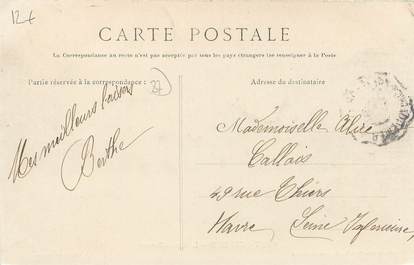 12€
CARTE POSTALE
La Correspondance au recto n'est pas acceptée par tous les pays étrangers (se renseigner à la Poste)
Partie réservée à la correspondance
Adresse du destinataire
37
Mes meilleurs baisers
Berthe
Mademoiselle Alice
Callais
49 rue Thiers
Havre Seine Inférieure